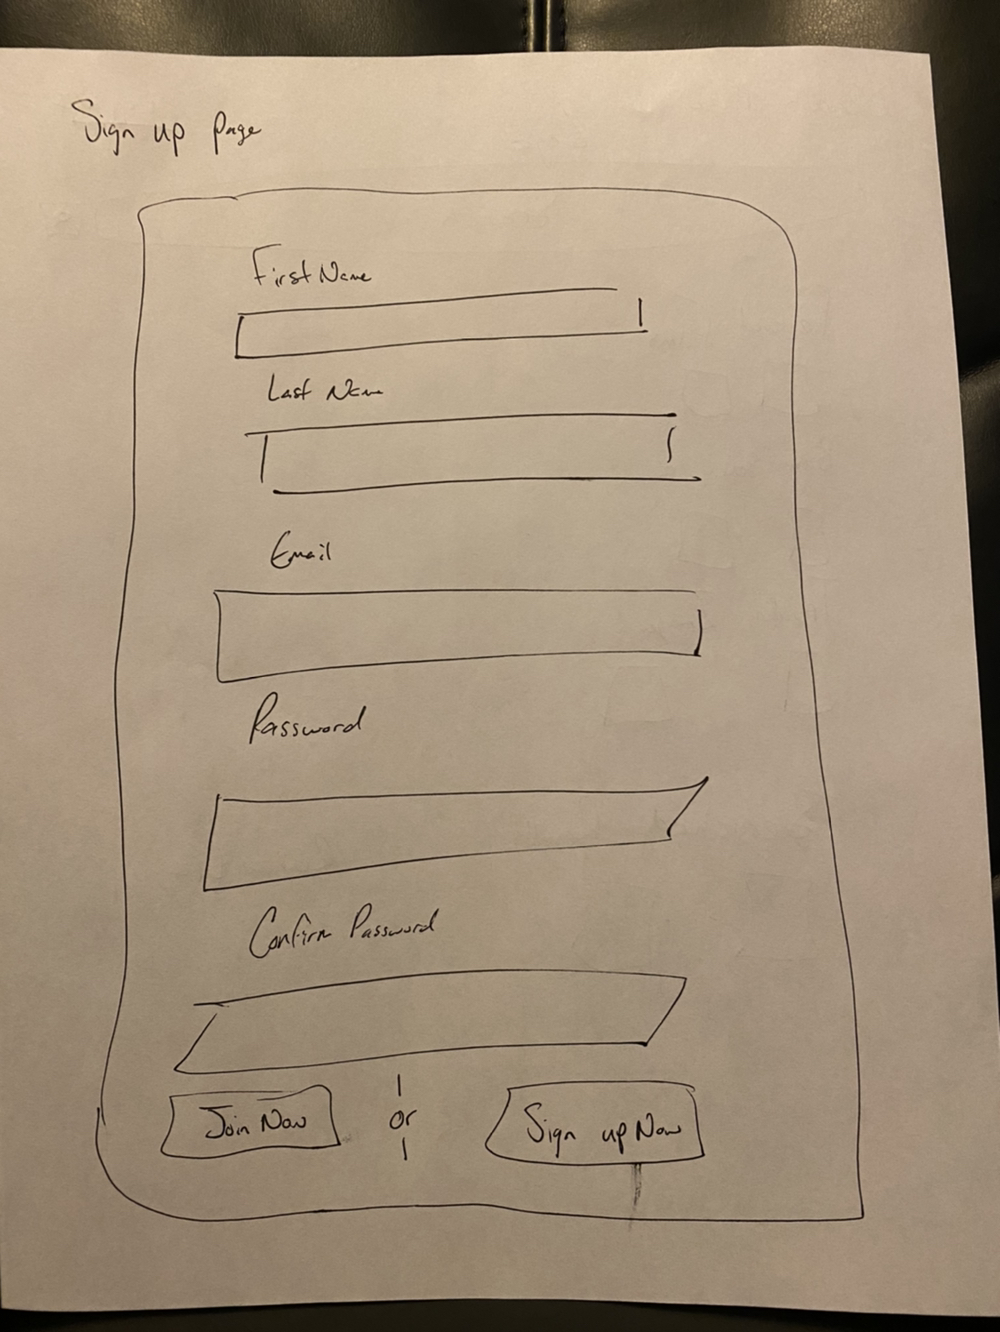 Sign up page
First Name
Last Name
Email
Password
Confirm Password
Join Now
or
Sign up Now